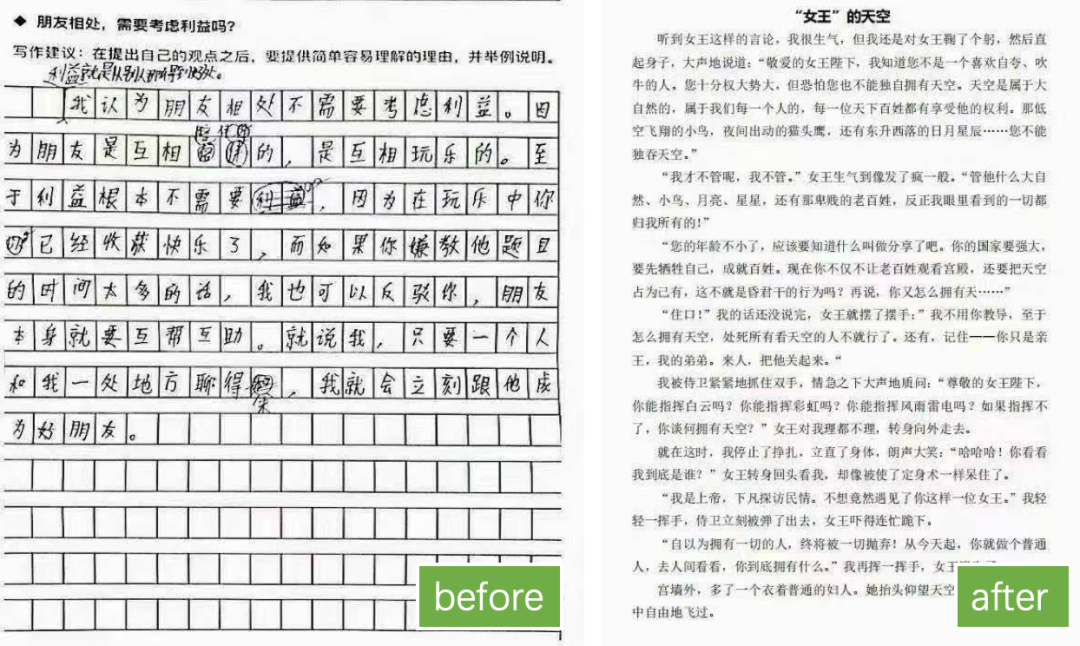 ◆ 朋友相处，需要考虑利益吗？
写作建议：在提出自己的观点之后，要提供简单容易理解的理由，并举例说明。
利益就是从别人那得到好处。
我认为朋友相处不需要考虑利益。因
为朋友是互相
的，是互相玩乐的。至
于利益根本不需要
，因为在玩乐中你
已经收获快乐了，而如果你嫌教他题目
的时间太多的话，我也可以反驳你，朋友
本身就要互帮互助。就说我，只要一个人
和我一处地方聊得
来
，我就会立刻跟他成
为好朋友。
before
“女王”的天空
听到女王这样的言论，我很生气，但我还是对女王鞠了个躬，然后直
起身子，大声地说道：“敬爱的女王陛下，我知道您不是一个喜欢自夸、吹
牛的人。您十分权大势大，但恐怕您也不能独自拥有天空。天空是属于大
自然的，属于我们每一个人的，每一位天下百姓都有享受他的权利。那低
空飞翔的小鸟，夜间出动的猫头鹰，还有东升西落的日月星辰……您不能
独吞天空。”
“我才不管呢，我不管。”女王生气到像发了疯一般。“管他什么大自
然、小鸟、月亮、星星，还有那卑贱的老百姓，反正我眼里看到的一切都
归我所有的！”
“您的年龄不小了，应该要知道什么叫做分享了吧。你的国家要强大，
要先牺牲自己，成就百姓。现在你不仅不让老百姓观看宫殿，还要把天空
占为己有，这不就是昏君干的行为吗？再说，你又怎么拥有天……”
“住口！”我的话还没说完，女王就摆了摆手：”我不用你教导，至于
怎么拥有天空，处死所有看天空的人不就行了。还有，记住——你只是亲
王，我的弟弟。来人，把他关起来。“
我被侍卫紧紧地抓住双手，情急之下大声地质问：“尊敬的女王陛下，
你能指挥白云吗？你能指挥彩虹吗？你能指挥风雨雷电吗？如果指挥不
了，你谈何拥有天空？”女王对我理都不理，转身向外走去。
就在这时，我停止了挣扎，立直了身体，朗声大笑：“哈哈哈！你看看
我到底是谁？”女王转身回头看我，却像被使了定身术一样呆住了。
“我是上帝，下凡探访民情。不想竟然遇见了你这样一位女王。”我轻
轻一挥手，侍卫立刻被弹了出去，女王吓得连忙跪下。
“自以为拥有一切的人，终将被一切抛弃！从今天起，你就做个普通
人，去人间看看，你到底拥有什么。”我再挥一挥手，女王
宫墙外，多了一个衣着普通的妇人。她抬头仰望天空
中自由地飞过。
after